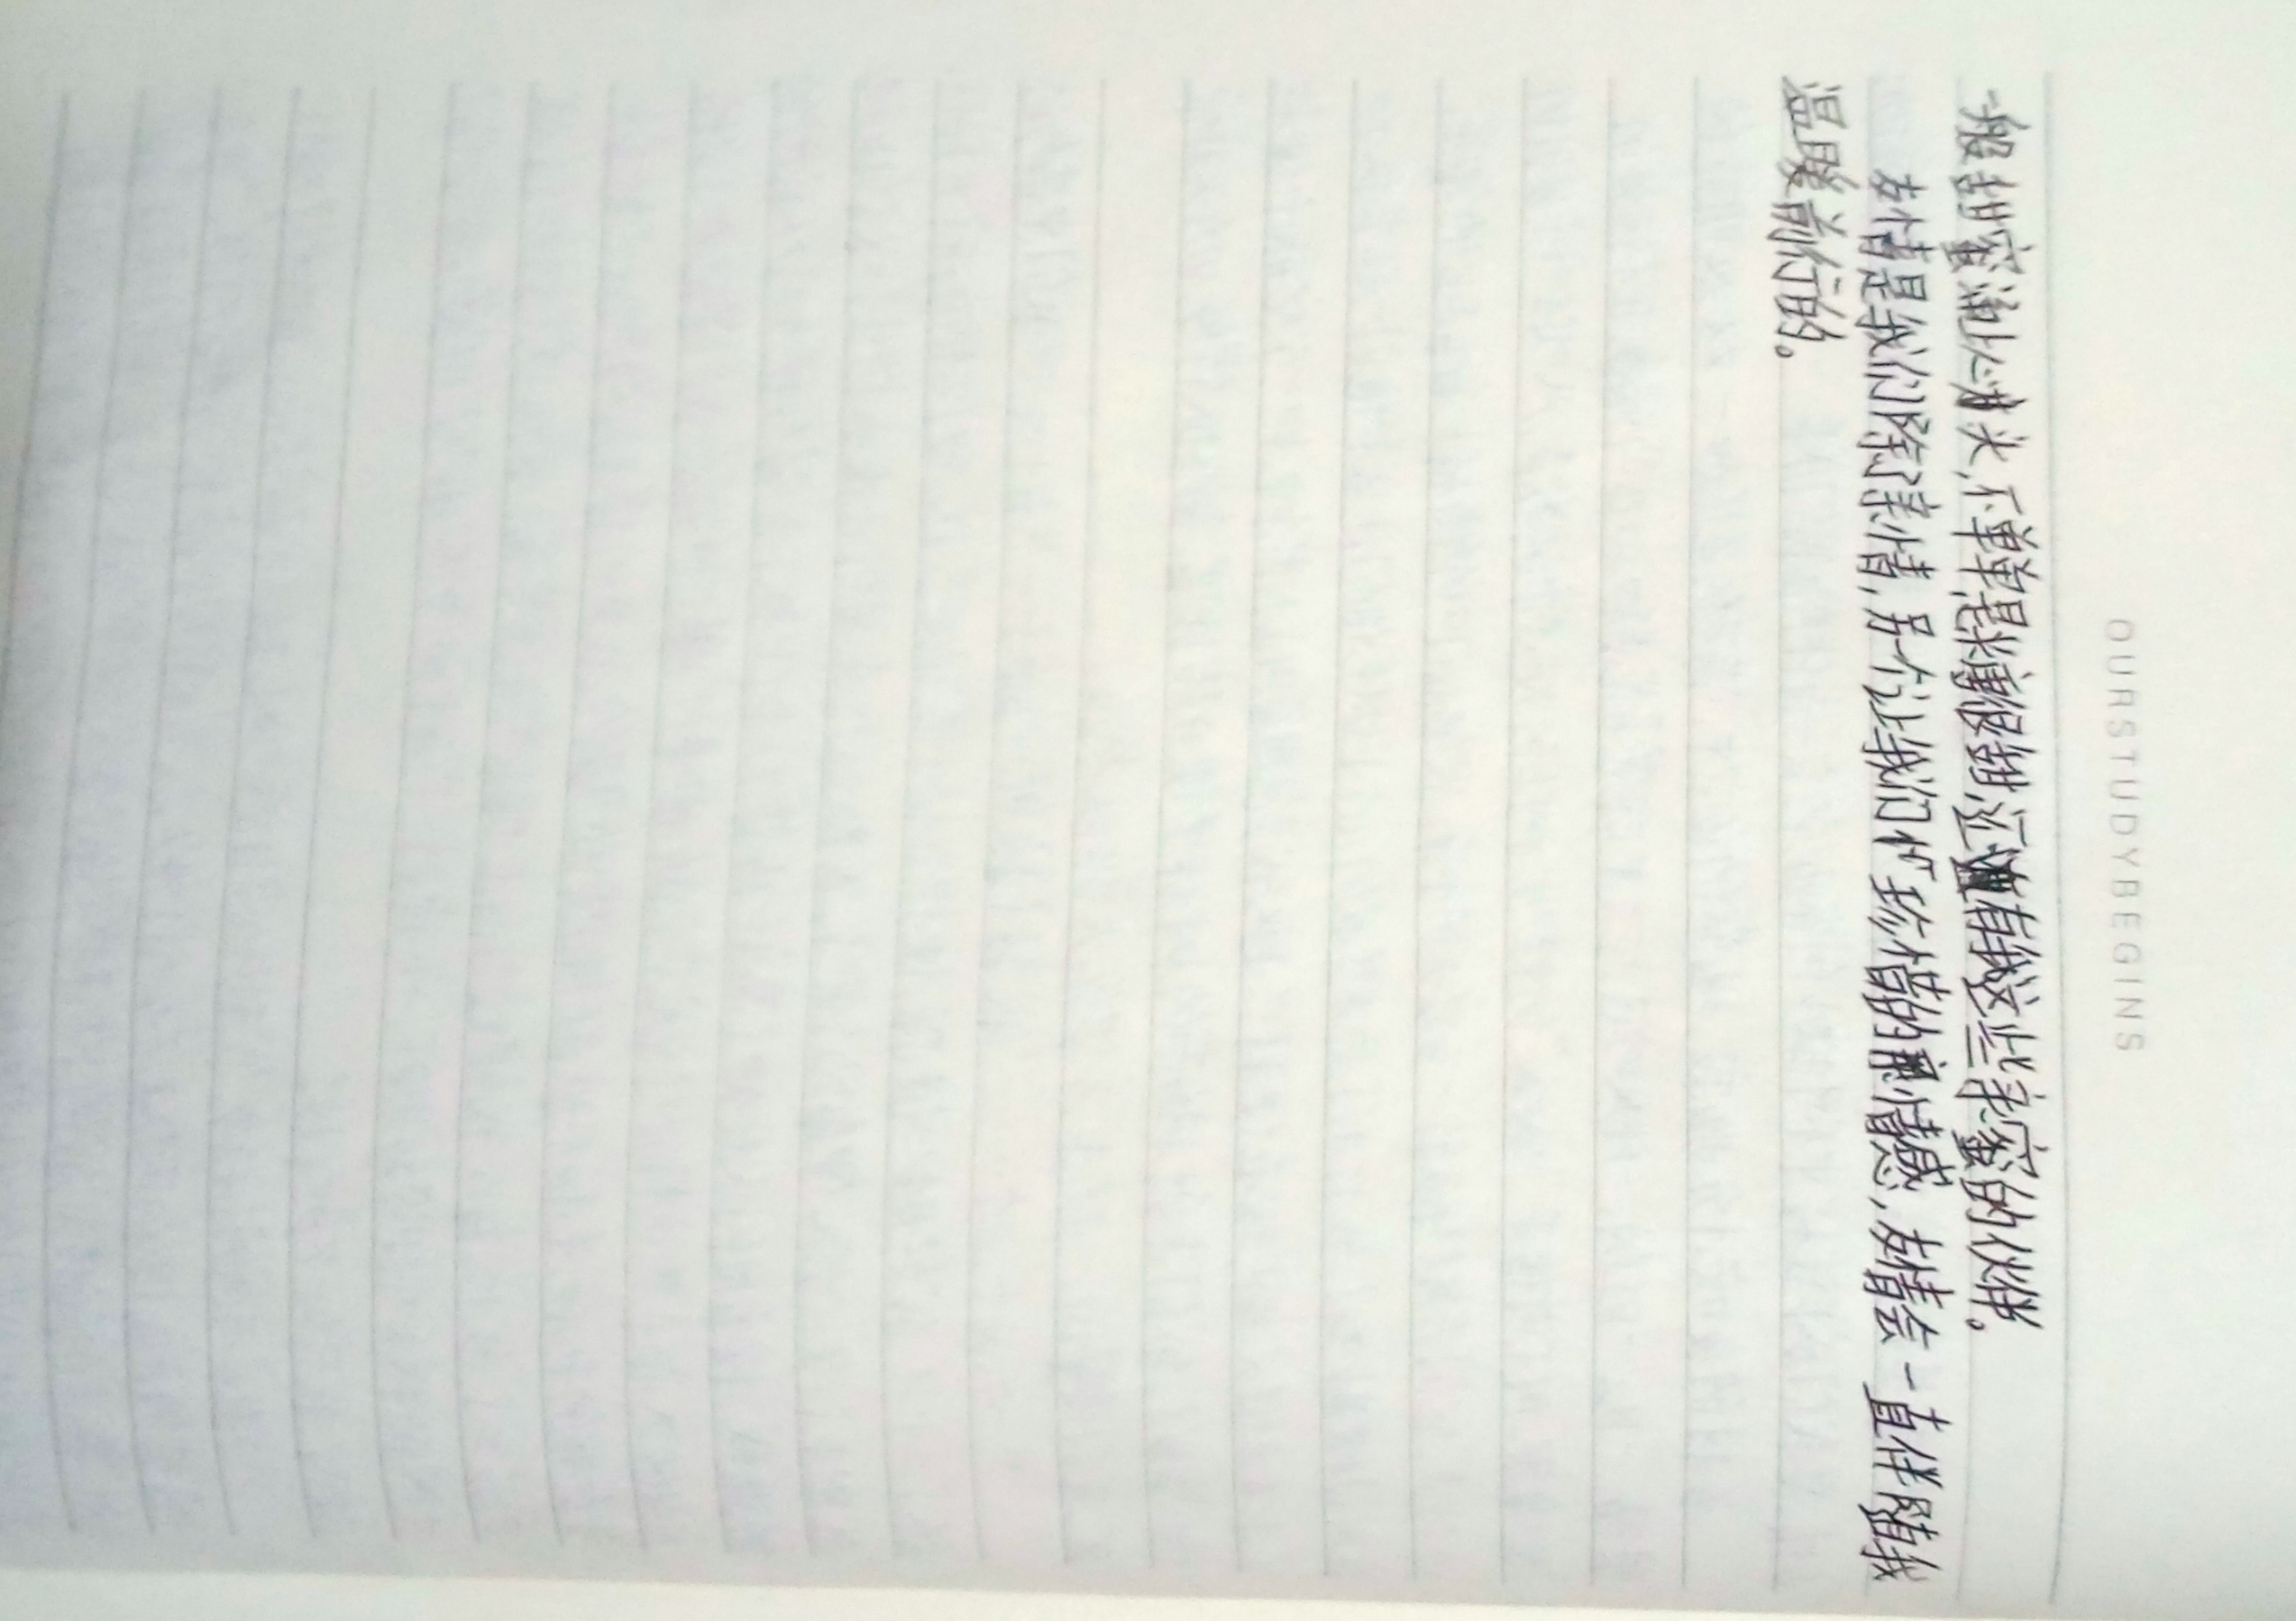 OURSTUDYBEGINS
一般甜蜜涌上心头,不单是糖很甜还有我这些亲蜜的伙伴。
友情是我们除了亲情,另一个让我们忙珍惜的情感,友情会一直伴随我
温暖前行的。